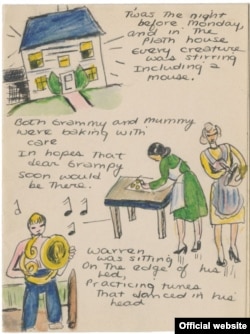 'Twas the night
before Monday,
and in the
Plath house
Every creature
was stirring
Including a
mouse.
Both Grammy and mummy
were baking with
care
In hopes that
dear Grampy
soon would
be there.
Warren
was sitting
On the edge of his
bed,
Practicing tunes
That danced in his
head
Official website